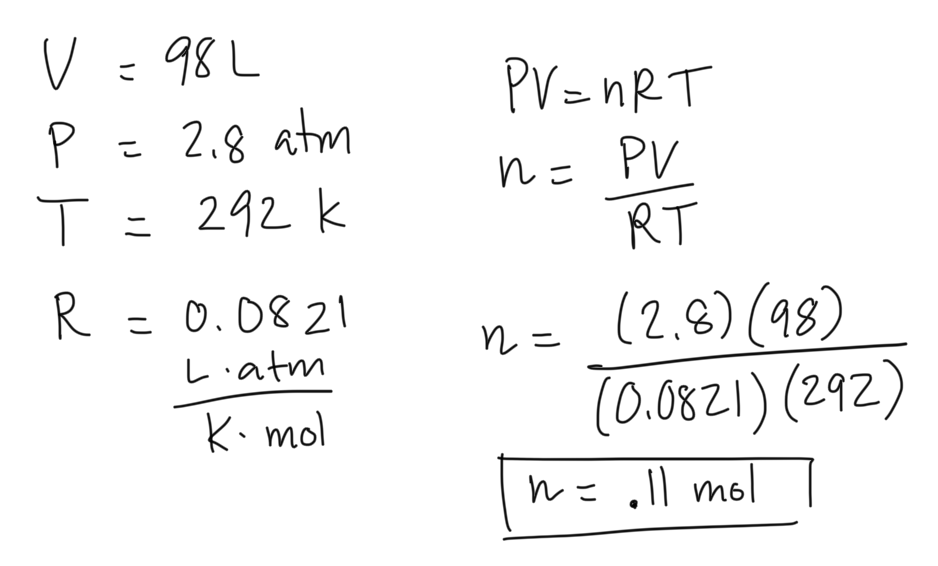 V = 98 L
P = 2.8 atm
T = 292 k
R = 0.0821
L·atm
K· mol
PV = nRT
n = PV
RT
n = (2.8)(98)
(0.0821)(292)
n = .11 mol